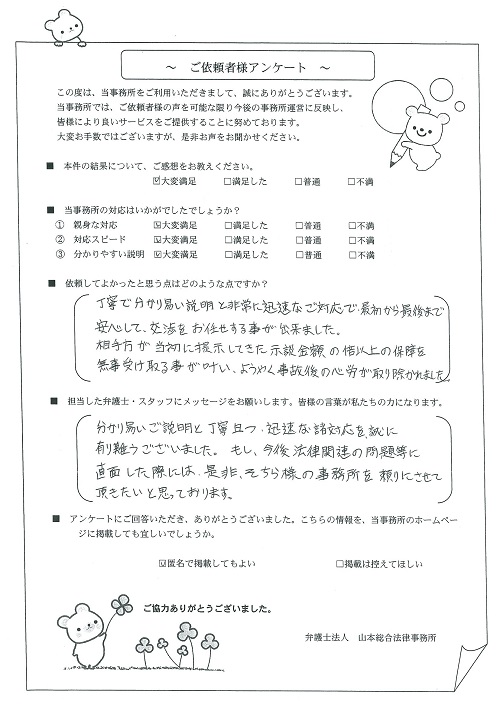 ～ ご依頼者様アンケート ～
この度は、当事務所をご利用いただきまして、誠にありがとうございます。
当事務所では、ご依頼者様の声を可能な限り今後の事務所運営に反映し、
皆様により良いサービスをご提供することに努めております。
大変お手数ではございますが、是非お声をお聞かせください。
■ 本件の結果について、ご感想をお教えください。
☑大変満足 □満足した □普通 □不満
■ 当事務所の対応はいかがでしたでしょうか？
① 親身な対応 ☑大変満足 □満足した □普通 □不満
② 対応スピード ☑大変満足 □満足した □普通 □不満
③ 分かりやすい説明 ☑大変満足 □満足した □普通 □不満
■ 依頼してよかったと思う点はどのような点ですか？
丁寧で分かり易い説明と非常に迅速なご対応で、最初から最後まで
安心して、交渉をお任せする事が出来ました。
相手方が当初に提示してきた示談金額の倍以上の保障を
無事受け取る事が叶い、ようやく事故後の心労が取り除かれました。
■ 担当した弁護士・スタッフにメッセージをお願いします。皆様の言葉が私たちの力になります。
分かり易いご説明と丁寧且つ、迅速な諸対応を、誠に
有り難うございました。もし、今後法律関連の問題等に
直面した際には、是非、そちら様の事務所を頼りにさせて
頂きたいと思っております。
■ アンケートにご回答いただき、ありがとうございました。こちらの情報を、当事務所のホームペー
ジに掲載しても宜しいでしょうか。
☑匿名で掲載してもよい □掲載は控えてほしい
ご協力ありがとうございました。
弁護士法人 山本総合法律事務所